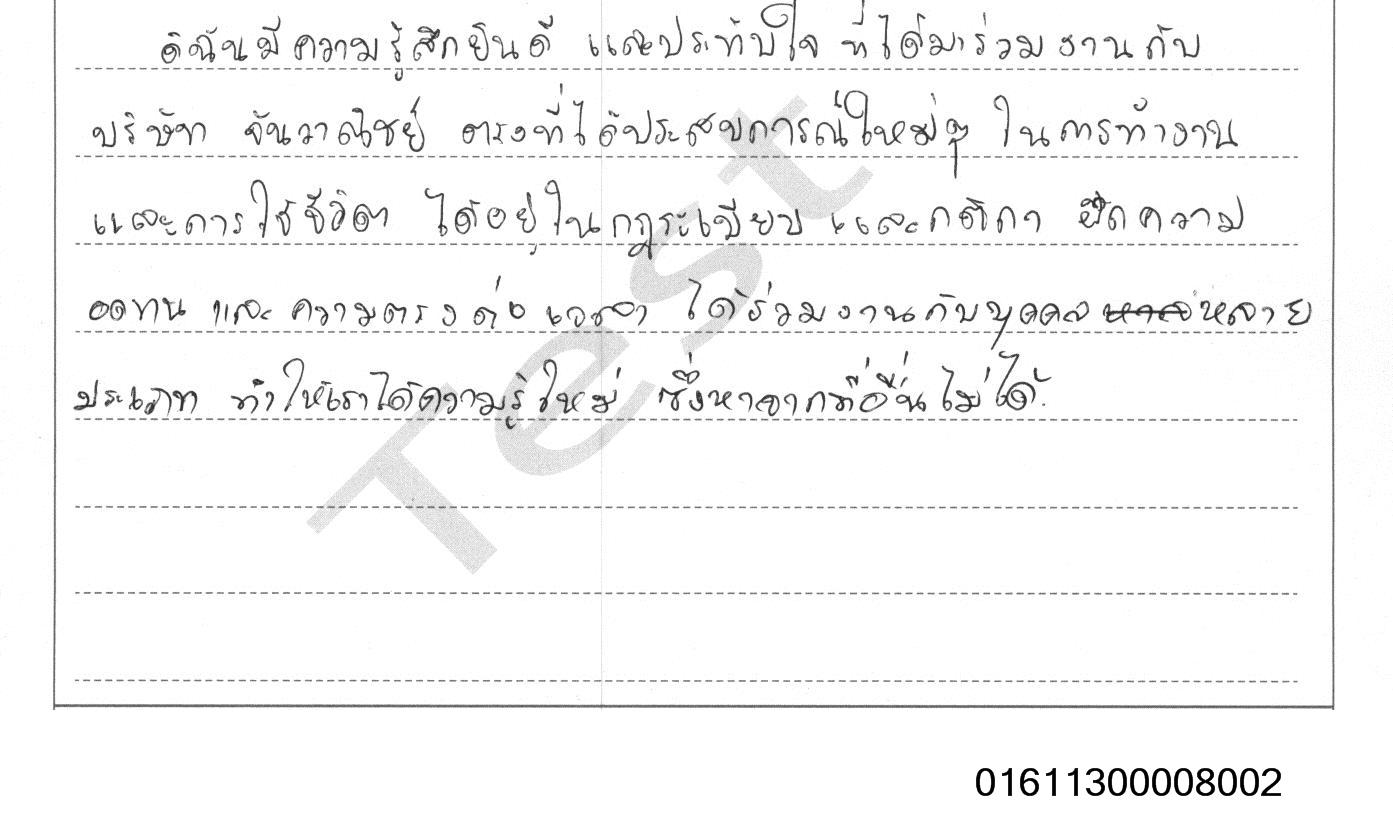 ดิฉันมีความรู้สึกยินดี และประทับใจ ที่ได้มาร่วมงานกับ
บริษัท จันวาณิชย์ ตรงที่ได้ประสบการณ์ใหม่ๆ ในการทำงาน
และการใช้ชีวิต ได้อยู่ในกฎระเบียบ และกติกา ฝึกความ
อดทน และ ความตรงต่อเวลา ได้ร่วมงานกับบุคคล หลาย
ประเภท ทำให้เราได้ความรู้ใหม่ ซึ่งหาจากที่อื่นไม่ได้.
Test
01611300008002